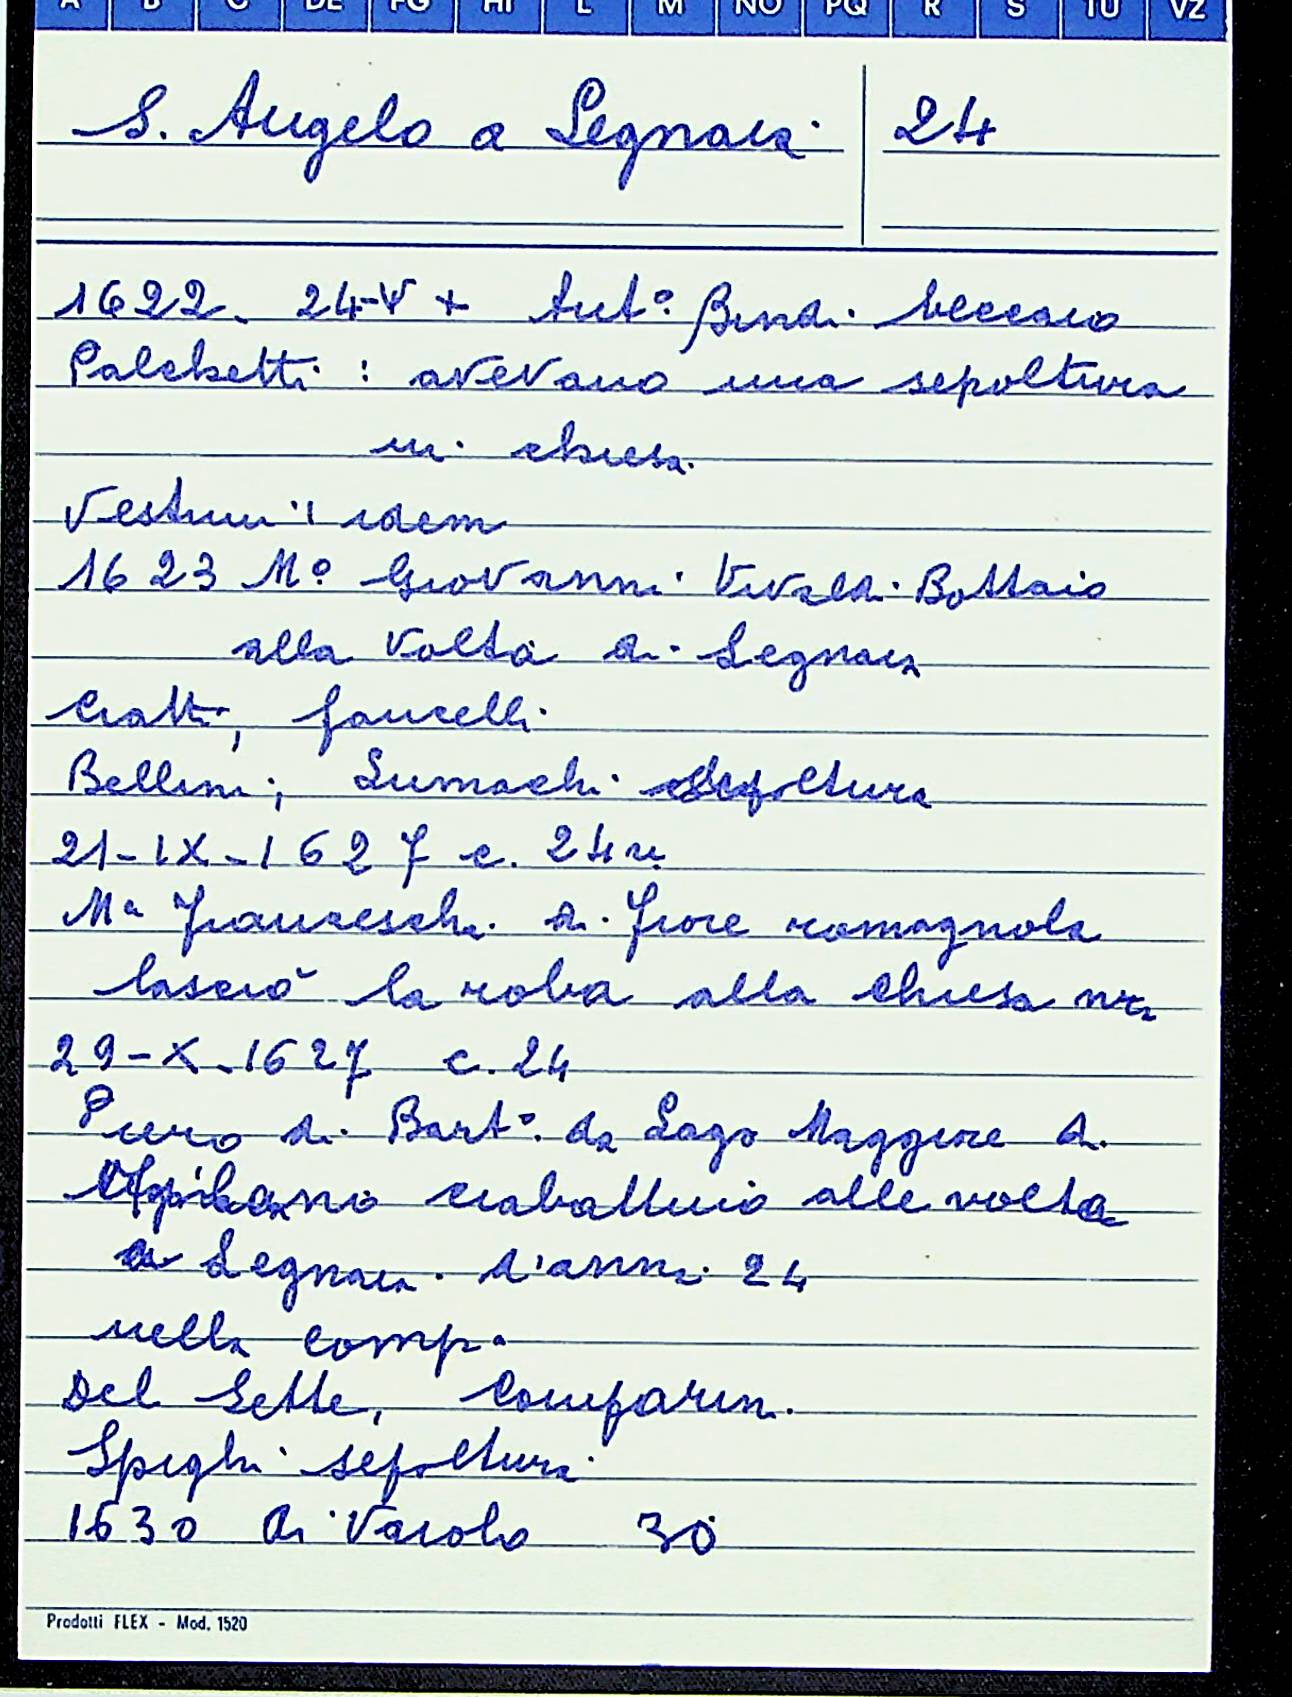 A B C DE FG HI L M NO PQ R S TU VZ
S. Angelo a Legnaia 24
1622. 24-V + Ant.º Bindi beccaio
Palchetti : avevano una sepoltura
in chiesa
Vestrini : idem
1623 Mº Giovanni Vivaldi Bottaio
alla Volta di Legnaia
Ciatti, fancelli
Bellini, Lumachi sepoltura
21-IX-1627 c. 24 r.
Mª Francescha di Fiore romagnola
lasciò la roba alla Chiesa nra
29-X-1627 c. 24
Piero di Bart.º da Lago Maggiore di
ciabattino alle volta
a Legnaia d'anni 24
nella comp.
Del Sette, Comparin.
Spighi sepoltura
1630 di Vaiolo 30
Prodotti FLEX - Mod. 1520